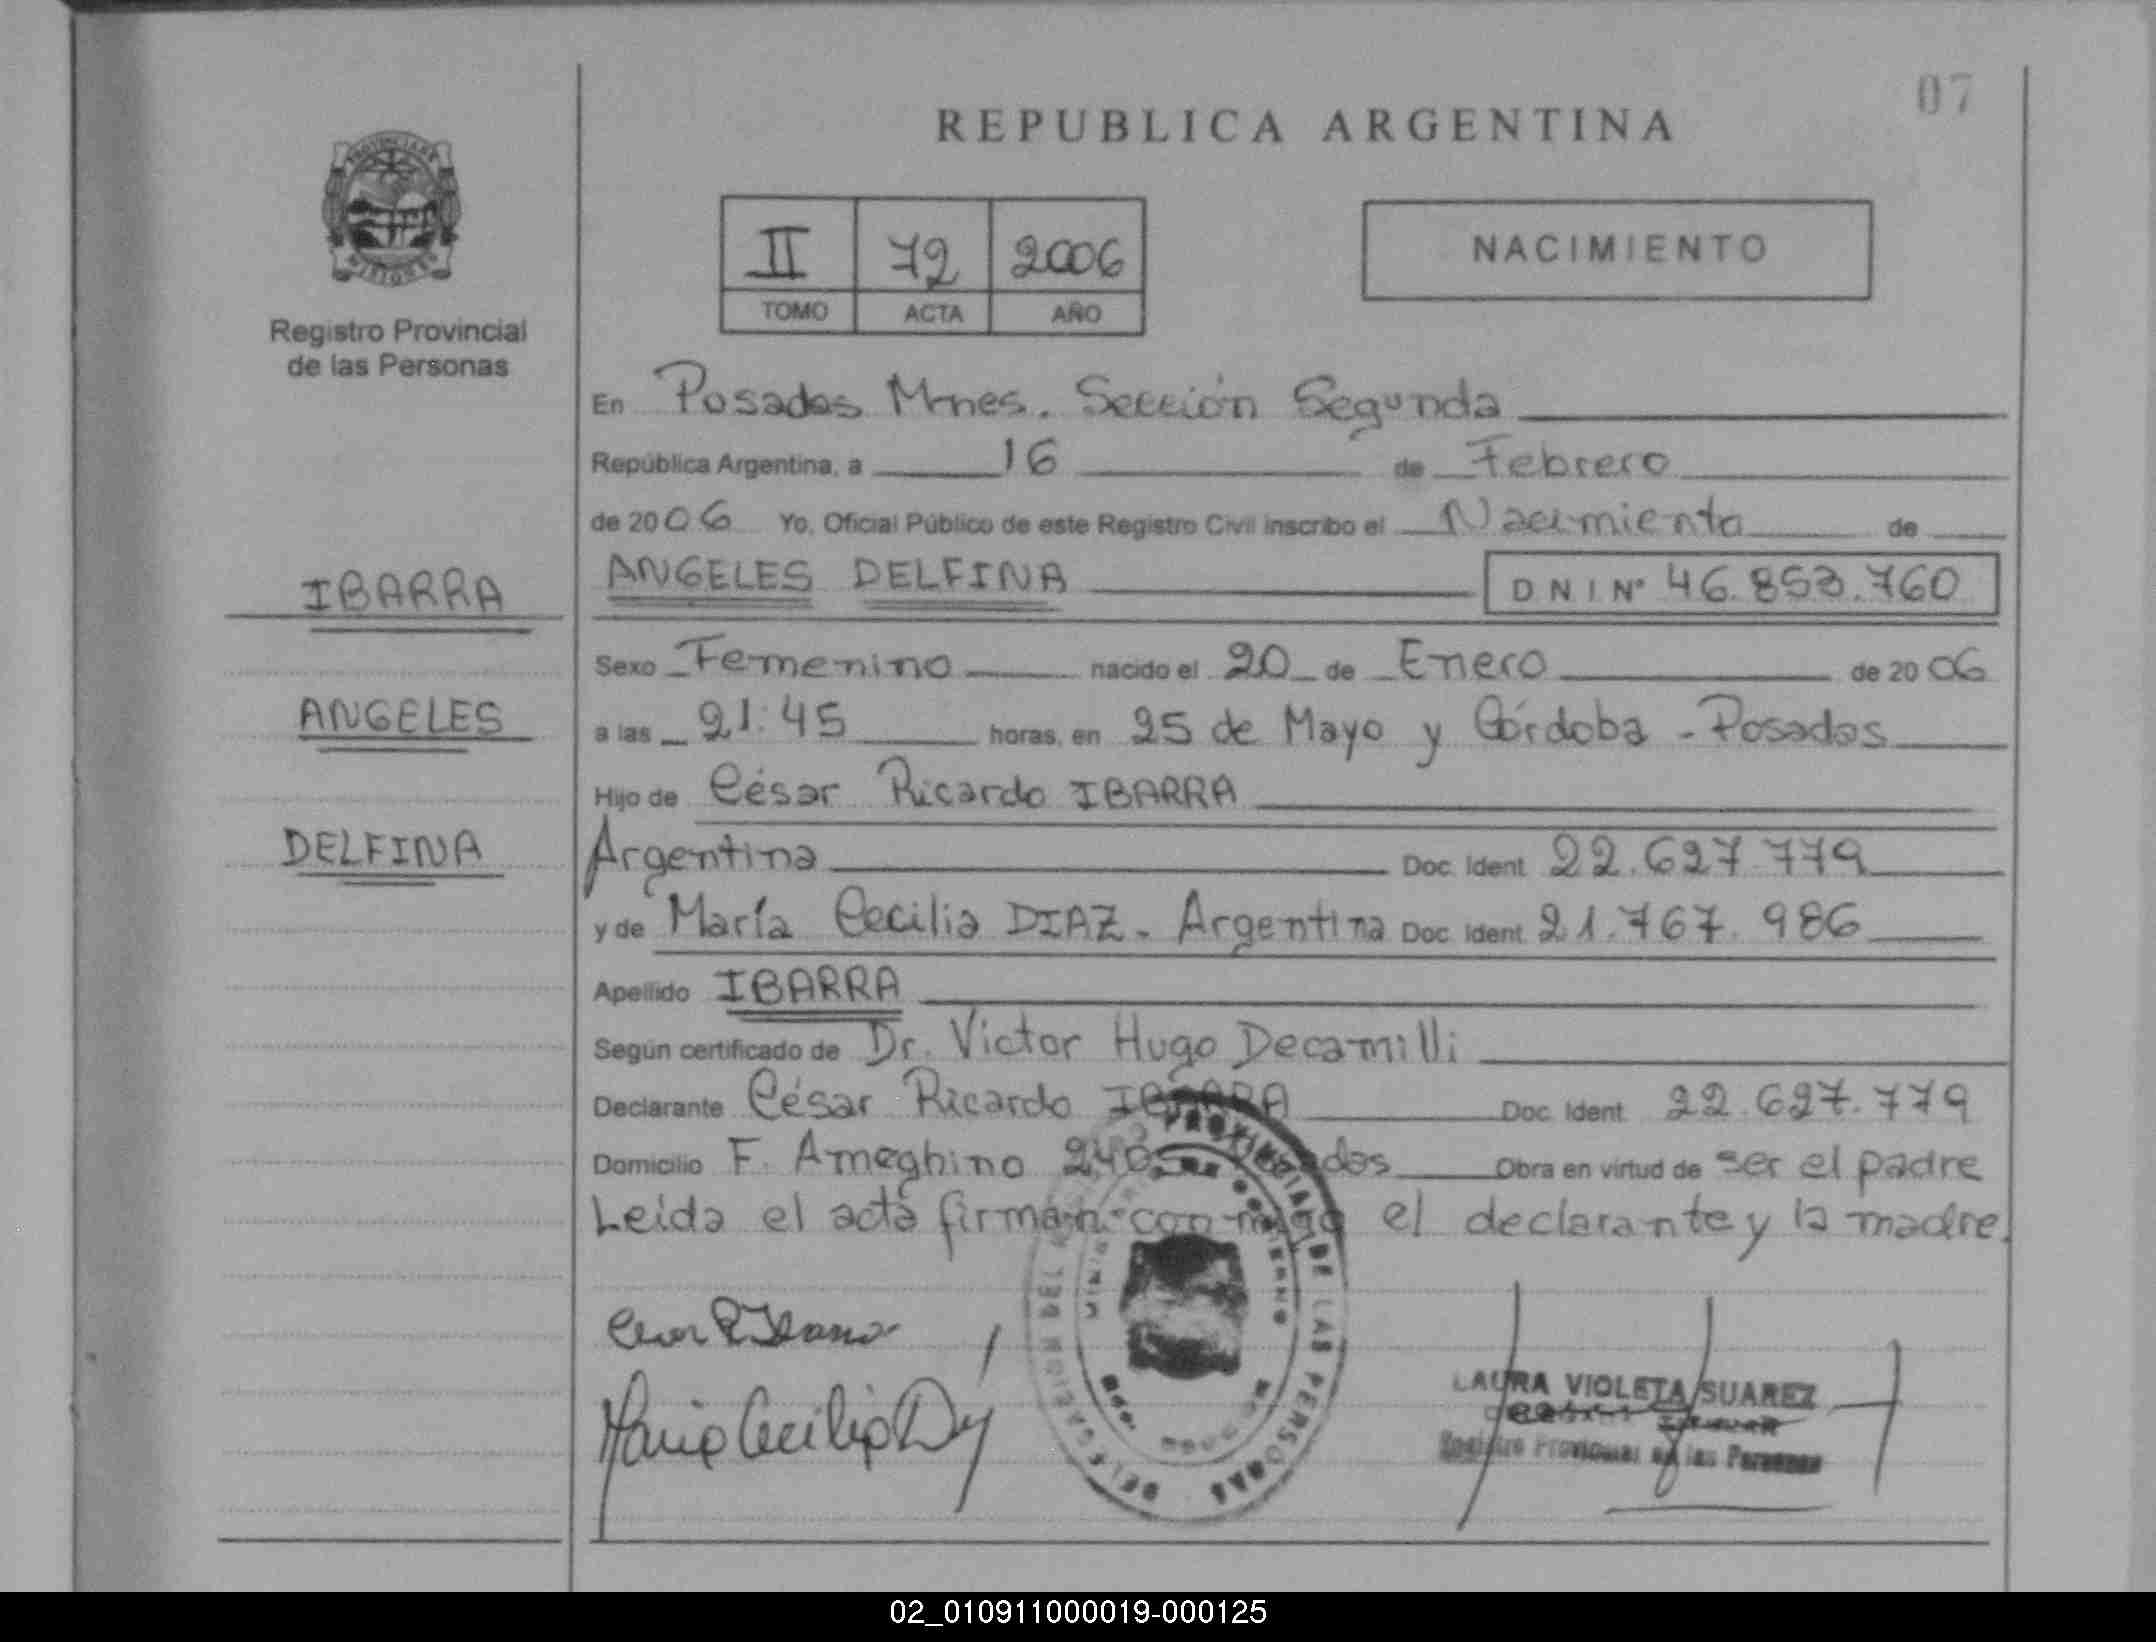 07
REPUBLICA ARGENTINA
II 72 2006
TOMO ACTA AÑO
NACIMIENTO
PROVINCIA DE
MISIONES
Registro Provincial
de las Personas
En Posadas Mnes. Sección Segunda
República Argentina, a 16 de Febrero
de 2006 Yo, Oficial Público de este Registro Civil inscribo el Nacimiento de
IBARRA
ANGELES DELFINA D N I Nº 46.853.760
Sexo Femenino nacido el 20 de Enero de 2006
ANGELES
a las 21:45 horas, en 25 de Mayo y Córdoba - Posadas
Hijo de César Ricardo IBARRA
DELFINA
Argentina Doc. Ident. 22.627.779
y de María Cecilia DIAZ - Argentina Doc. Ident. 21.767.986
Apellido IBARRA
Según certificado de Dr. Victor Hugo Decamilli
Declarante César Ricardo IBARRA Doc. Ident. 22.627.779
Domicilio F. Ameghino Obra en virtud de ser el padre
Leida el acta firman conmigo el declarante y la madre.
DELEGACION DEL PROVINCIAL DE LAS PERSONAS
Maria Cecilia Diaz
LAURA VIOLETA SUAREZ
Registro Provincial de las Personas
02_010911000019-000125